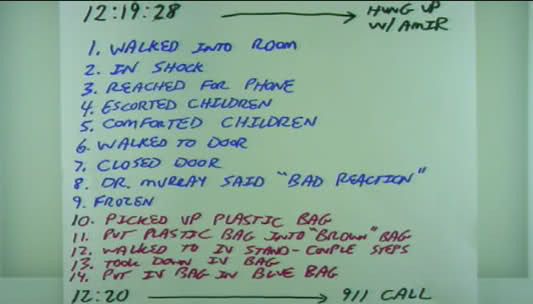 12:19:28 → HUNG UP
W/ AMIR
1. WALKED INTO ROOM
2. IN SHOCK
3. REACHED FOR PHONE
4. ESCORTED CHILDREN
5. COMFORTED CHILDREN
6. WALKED TO DOOR
7. CLOSED DOOR
8. DR. MURRAY SAID "BAD REACTION"
9. FROZEN
10. PICKED UP PLASTIC BAG
11. PUT PLASTIC BAG INTO "BROWN" BAG
12. WALKED TO IV STAND-COUPLE STEPS
13. TOOK DOWN IV BAG
14. PUT IV BAG IN BLUE BAG
12:20 → 911 CALL